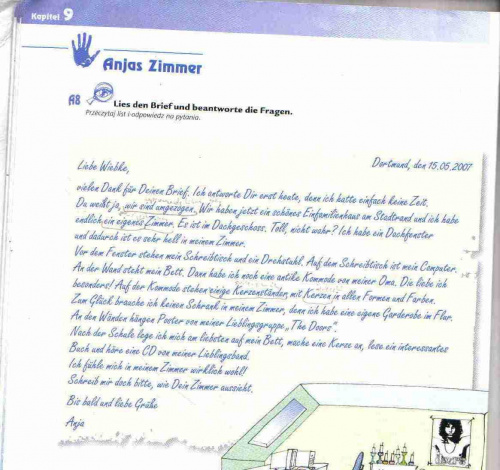 Kapitel 9
Anjas Zimmer
A8 Lies den Brief und beantworte die Fragen.
Przeczytaj list i odpowiedz na pytania.
Dortmund, den 15.05.2007
Liebe Wiebke,
vielen Dank für Deinen Brief. Ich antworte Dir erst heute, denn ich hatte einfach keine Zeit.
Du weißt ja, wir sind umgezogen. Wir haben jetzt ein schönes Einfamilienhaus am Stadtrand und ich habe
endlich ein eigenes Zimmer. Es ist im Dachgeschoss. Toll, nicht wahr? Ich habe ein Dachfenster
und dadurch ist es sehr hell in meinem Zimmer.
Vor dem Fenster stehen mein Schreibtisch und ein Drehstuhl. Auf dem Schreibtisch ist mein Computer.
An der Wand steht mein Bett. Dann habe ich noch eine antike Kommode von meiner Oma. Die liebe ich
besonders! Auf der Kommode stehen einige Kerzenständer mit Kerzen in allen Formen und Farben.
Zum Glück brauche ich keinen Schrank in meinem Zimmer, denn ich habe eine eigene Garderobe im Flur.
An den Wänden hängen Poster von meiner Lieblingsgruppe „The Doors“.
Nach der Schule lege ich mich am liebsten auf mein Bett, mache eine Kerze an, lese ein interessantes
Buch und höre eine CD von meiner Lieblingsband.
Ich fühle mich in meinem Zimmer wirklich wohl!
Schreib mir doch bitte, wie Dein Zimmer aussieht.
Bis bald und liebe Grüße
Anja